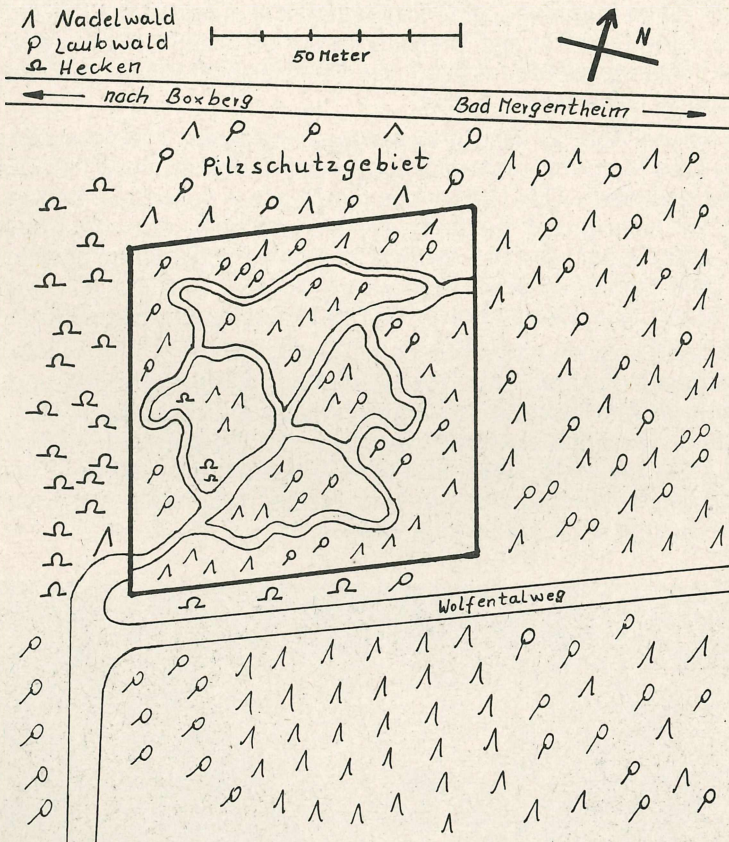 Nadelwald
Laubwald
Hecken
50 Meter
N
nach Boxberg
Bad Mergentheim
Pilzschutzgebiet
Wolfentalweg